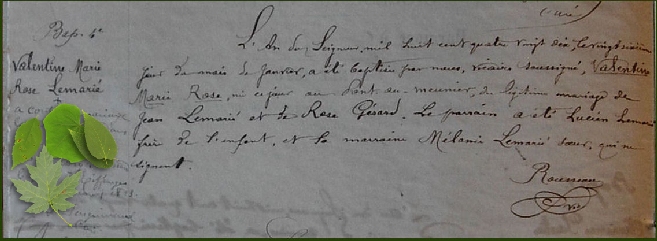 curé
Bap. 4e
Valentine Marie
Rose Lemarié
L'An du Seigneur, mil huit cent quatre vingt dix, le vingt sixième
jour de mois de Janvier, a été baptisée par nous, vicaire soussigné, Valentine
Marie Rose, née ce jour au Pont-au-meunier, du légitime mariage de
Jean Lemarié et de Rose Gérard. Le parrain a été Lucien Lemarié
frère de l'enfant, et la marraine Mélanie Lemarié sœur, qui ne
signent.
Rousseau
Vic